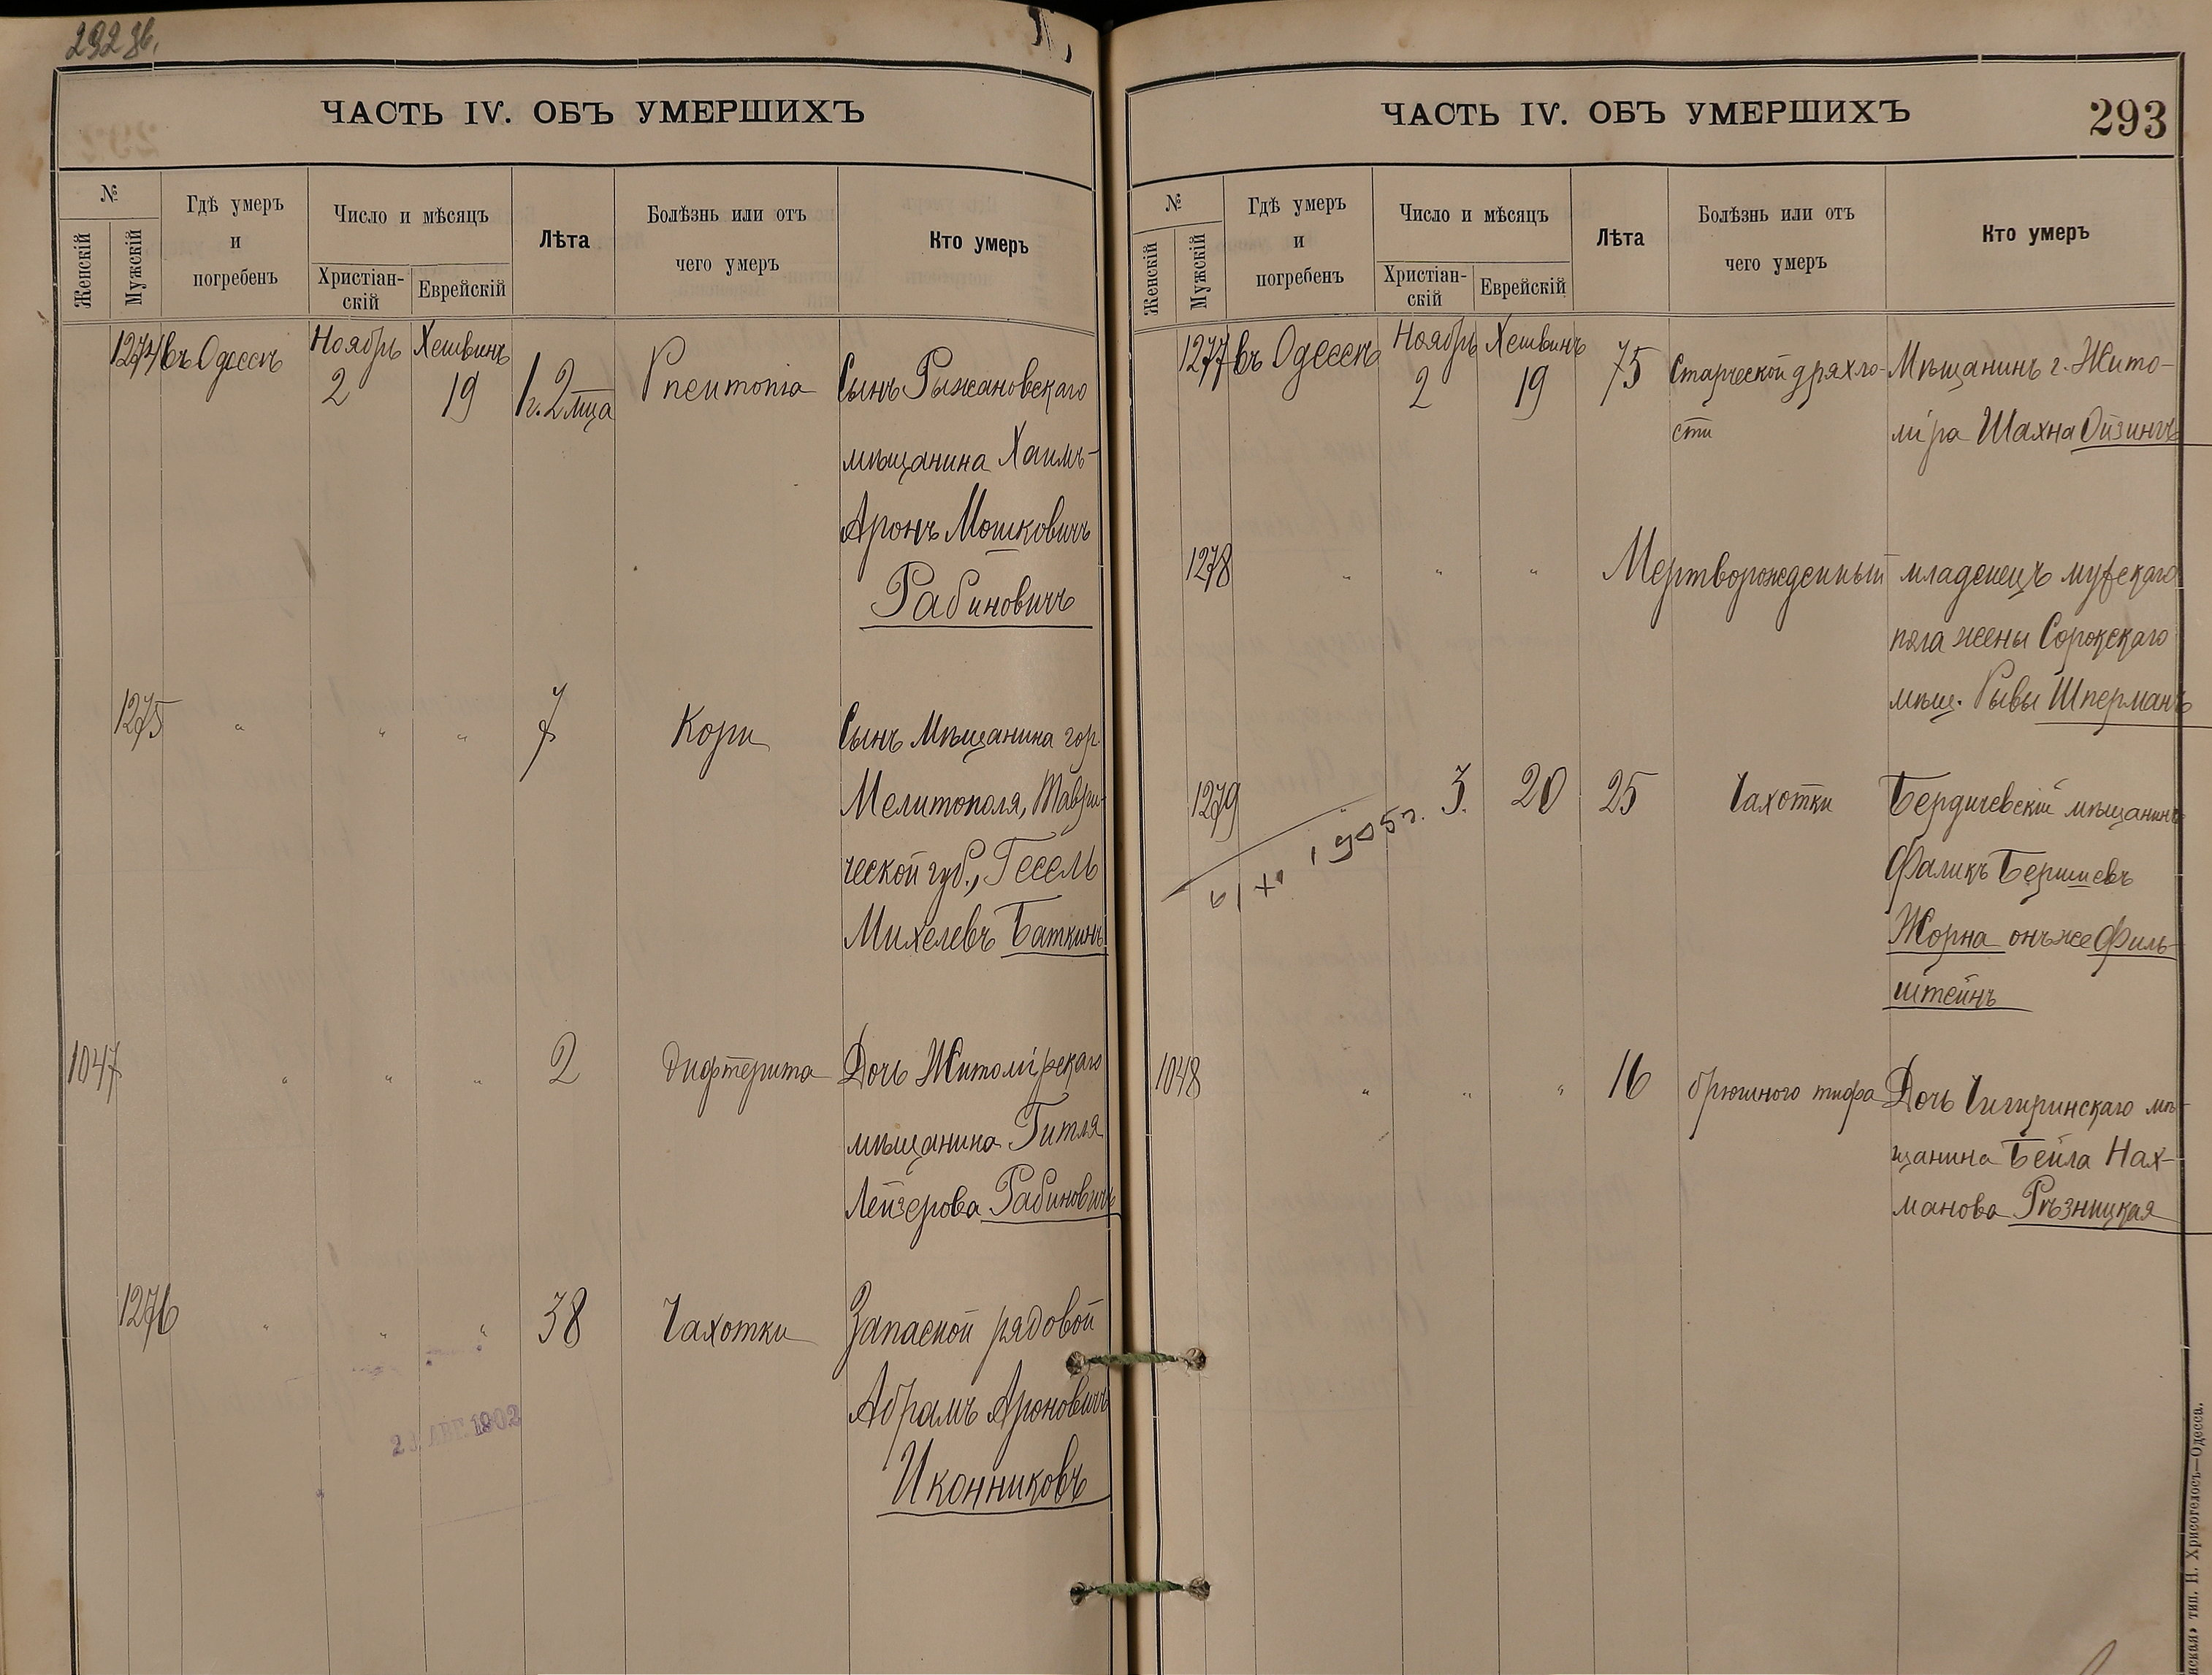 292 об.
ЧАСТЬ IV. ОБЪ УМЕРШИХЪ
№
Женскій
Мужскій
Гдѣ умеръ
и
погребенъ
Число и мѣсяцъ
Христіан-
скій
Еврейскій
Лѣта
Болѣзнь или отъ
чего умеръ
Кто умеръ
1274 въ Одессѣ Ноябрь 2 Хешвинъ 19 1 г. 2 мца Pneumonia Сынъ Рыжановскаго
мѣщанина Хаимъ-
Аронъ Мошковичъ
Рабиновичъ
1275 " " " 7 Кори Сынъ мѣщанина гор.
Мелитополя, Таври-
ческой губ., Гесель
Михелевъ Баткинъ
1047 " " " 2 Дифтерита Дочь Житомірскаго
мѣщанина Гитля
Лейзерова Рабиновичъ
1276 " " " 38 Чахотки Запасной рядовой
Абрамъ Ароновичъ
Иконниковъ
АВГ. 1902
ЧАСТЬ IV. ОБЪ УМЕРШИХЪ
293
№
Женскій
Мужскій
Гдѣ умеръ
и
погребенъ
Число и мѣсяцъ
Христіан-
скій
Еврейскій
Лѣта
Болѣзнь или отъ
чего умеръ
Кто умеръ
1277 въ Одессѣ Ноябрь 2 Хешвинъ 19 75 Старческой дряхло- Мѣщанинъ г. Жито-
сти міра Шахна Ойзингъ
1278 " " " Мертворожденный младенецъ мужскаго
пола жены Сорокскаго
мѣщ. Рывы Шперманъ
1279 3. 20 25 Чахотки Бердичевскій мѣщанинъ
1905 г.
Фаликъ Бершиевъ
Жорна онъ же Филь-
штейнъ
1048 " " " 16 брюшного тифа Дочь Чигиринскаго мѣ-
щанина Бейла Нах-
манова Рѣзницкая
тип. Н. Хрисогелосъ—Одесса.